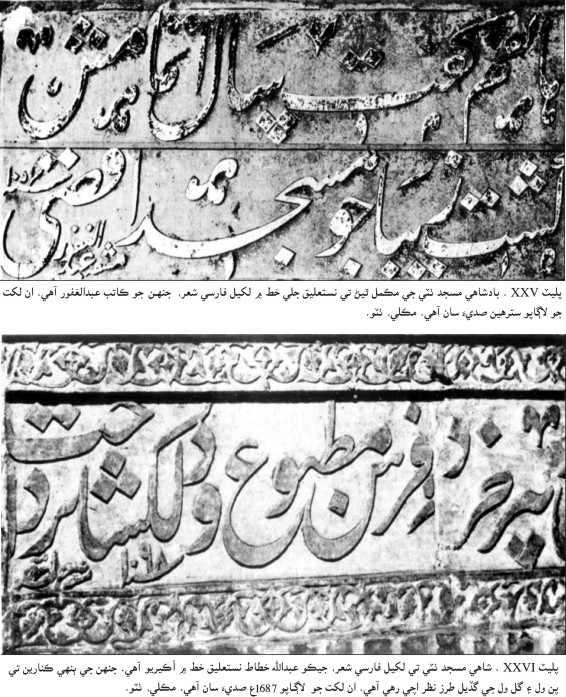 هاتفم گفت سال اتمامش
گشت زیبا چو مسجد اقصی
پليٽ XXV . بادشاهي مسجد ٺٽي جي مڪمل ٿيڻ تي نستعليق جلي خط ۾ لکيل فارسي شعر، جنهن جو ڪاتب عبدالغفور آهي. ان لکت
جو لاڳاپو سترهين صديءَ سان آهي. مڪلي، ٺٽو.
خرد فرش مطبوع و دلکشا
پليٽ XXVI . شاهي مسجد ٺٽي تي لکيل فارسي شعر، جيڪو عبدالله خطاط نستعليق خط ۾ اُڪيريو آهي. جنهن جي ٻنهي ڪنارين تي
پن ول ۽ گل ول جي گڏيل طرز نظر اچي رهي آهي. ان لکت جو لاڳاپو 1687ع صديءَ سان آهي. مڪلي، ٺٽو.